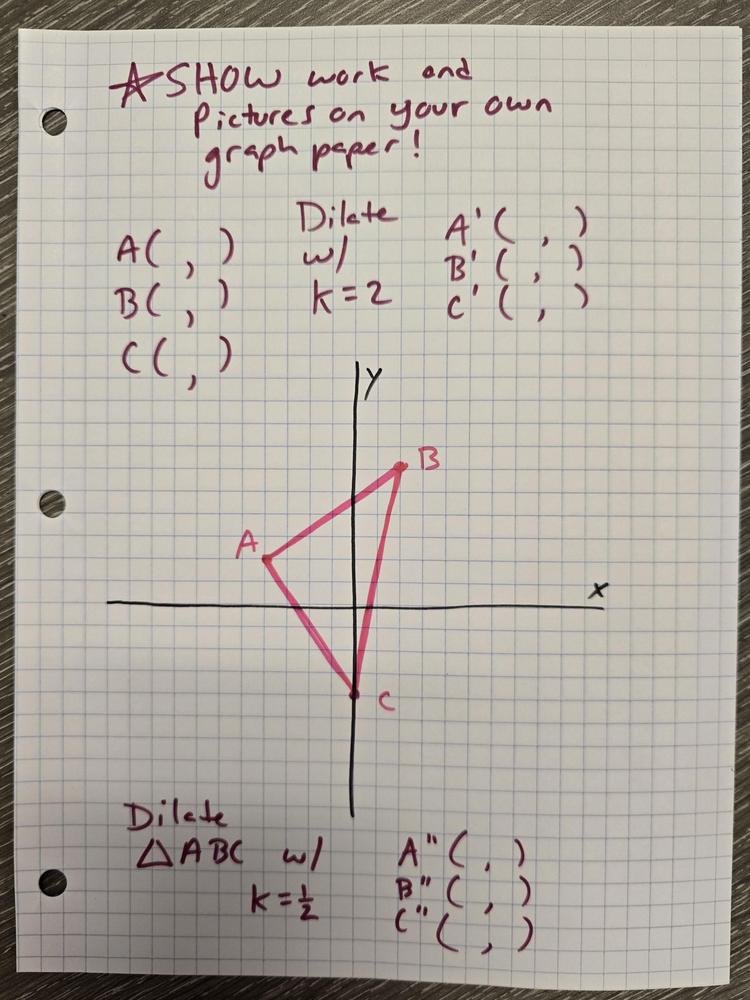 ☆ SHOW work and
Pictures on your own
graph paper!
A( , )
B( , )
C( , )
Dilate
w/
k=2
A'( , )
B'( , )
C'( , )
y
B
A
x
C
Dilate
△ABC w/
k=½
A"( , )
B"( , )
C"( , )